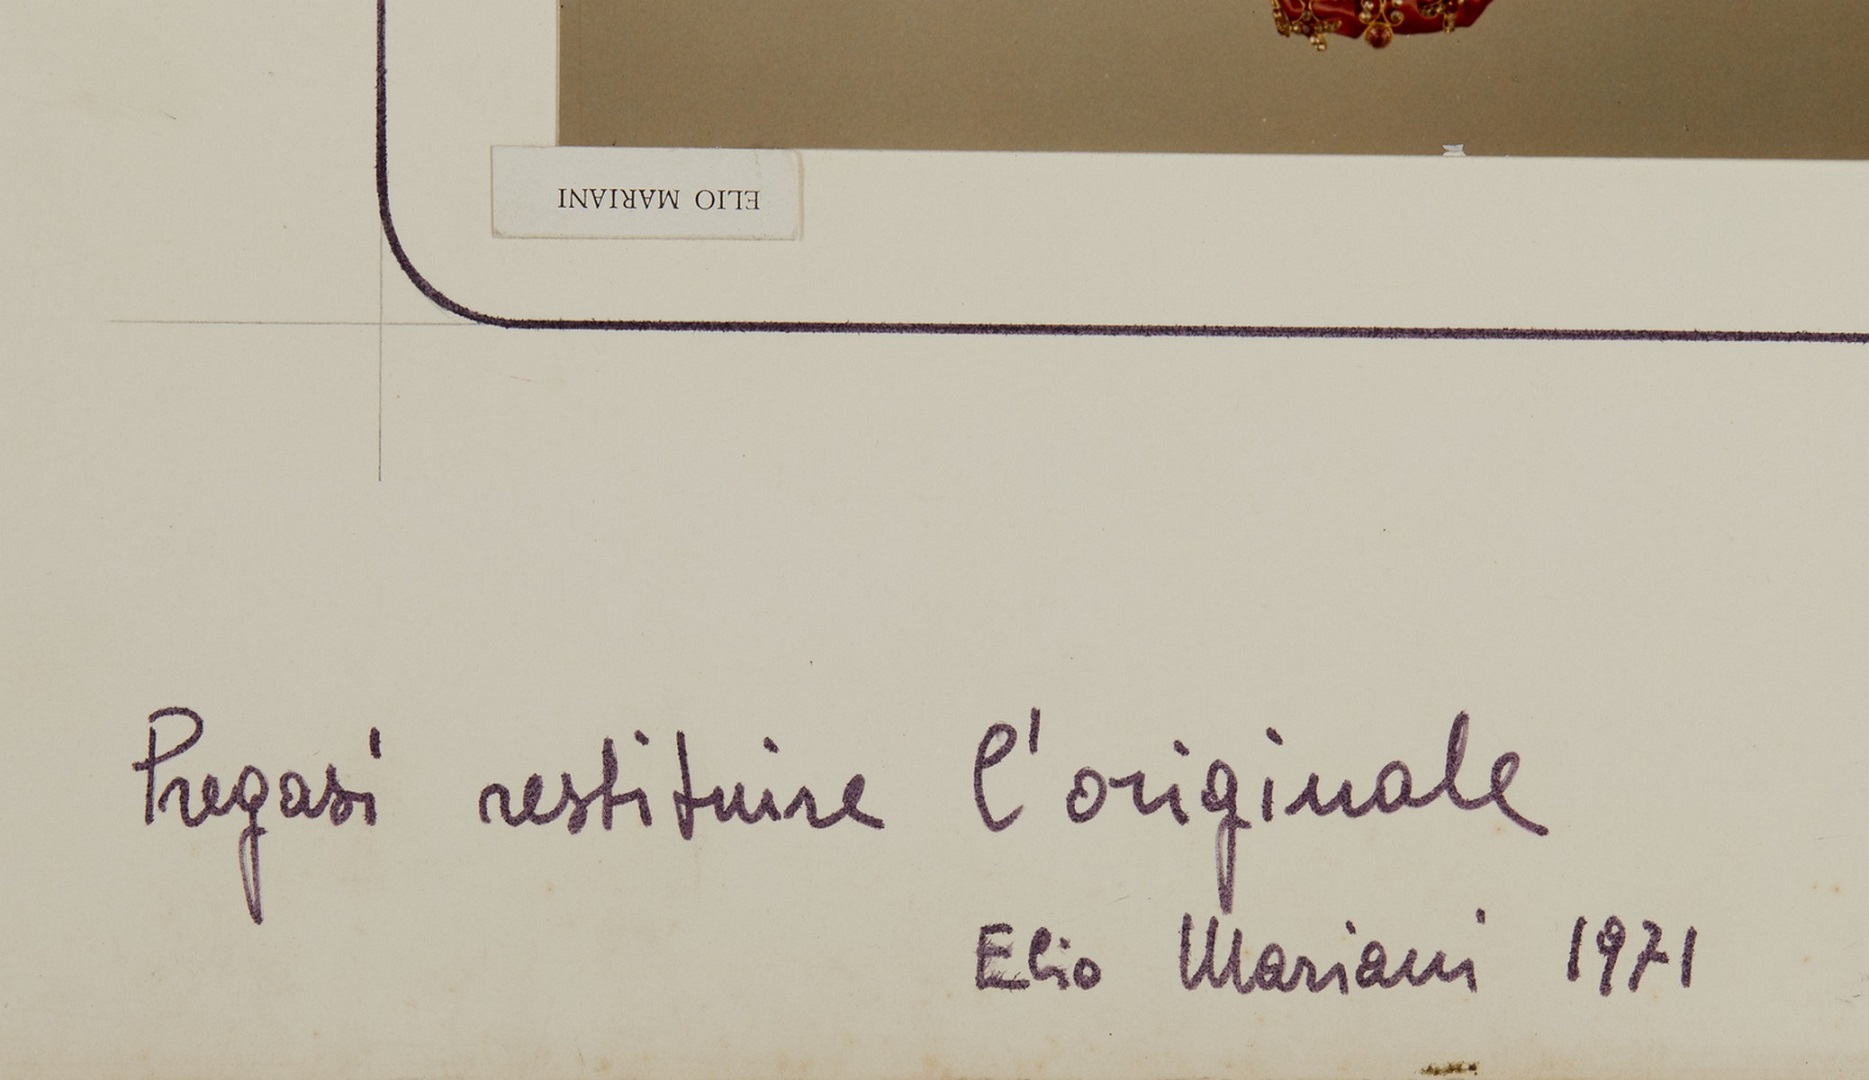 ELIO MARIANI
Pregasi restituire l'originale
Elio Mariani 1971